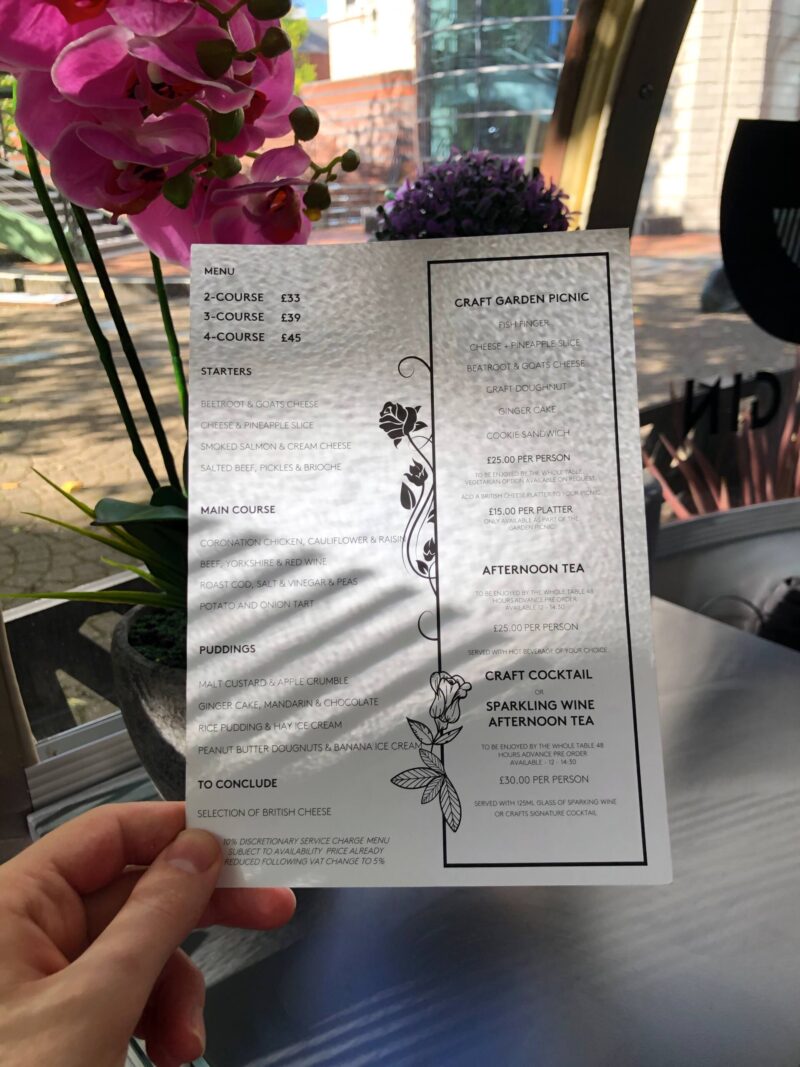 MENU
2-COURSE £33
3-COURSE £39
4-COURSE £45
STARTERS
BEETROOT & GOATS CHEESE
CHEESE & PINEAPPLE SLICE
SMOKED SALMON & CREAM CHEESE
SALTED BEEF, PICKLES & BRIOCHE
MAIN COURSE
CORONATION CHICKEN, CAULIFLOWER & RAISIN
BEEF, YORKSHIRE & RED WINE
ROAST COD, SALT & VINEGAR & PEAS
POTATO AND ONION TART
PUDDINGS
MALT CUSTARD & APPLE CRUMBLE
GINGER CAKE, MANDARIN & CHOCOLATE
RICE PUDDING & HAY ICE CREAM
PEANUT BUTTER DOUGNUTS & BANANA ICE CREAM
TO CONCLUDE
SELECTION OF BRITISH CHEESE
10% DISCRETIONARY SERVICE CHARGE MENU
SUBJECT TO AVAILABILITY PRICE ALREADY
REDUCED FOLLOWING VAT CHANGE TO 5%
CRAFT GARDEN PICNIC
FISH FINGER
CHEESE + PINEAPPLE SLICE
BEATROOT & GOATS CHEESE
CRAFT DOUGHNUT
GINGER CAKE
COOKIE SANDWICH
£25.00 PER PERSON
TO BE ENJOYED BY THE WHOLE TABLE
VEGETARIAN OPTION AVAILABLE ON REQUEST
ADD A BRITISH CHEESE PLATTER TO YOUR PICNIC
£15.00 PER PLATTER
ONLY AVAILABLE AS PART OF THE
GARDEN PICNIC
AFTERNOON TEA
TO BE ENJOYED BY THE WHOLE TABLE 48
HOURS ADVANCE PRE ORDER
AVAILABLE 12 - 14:30
£25.00 PER PERSON
SERVED WITH HOT BEVERAGE OF YOUR CHOICE
CRAFT COCKTAIL
OR
SPARKLING WINE
AFTERNOON TEA
TO BE ENJOYED BY THE WHOLE TABLE 48
HOURS ADVANCE PRE ORDER
AVAILABLE - 12 - 14:30
£30.00 PER PERSON
SERVED WITH 125ML GLASS OF SPARKING WINE
OR CRAFTS SIGNATURE COCKTAIL
GIN